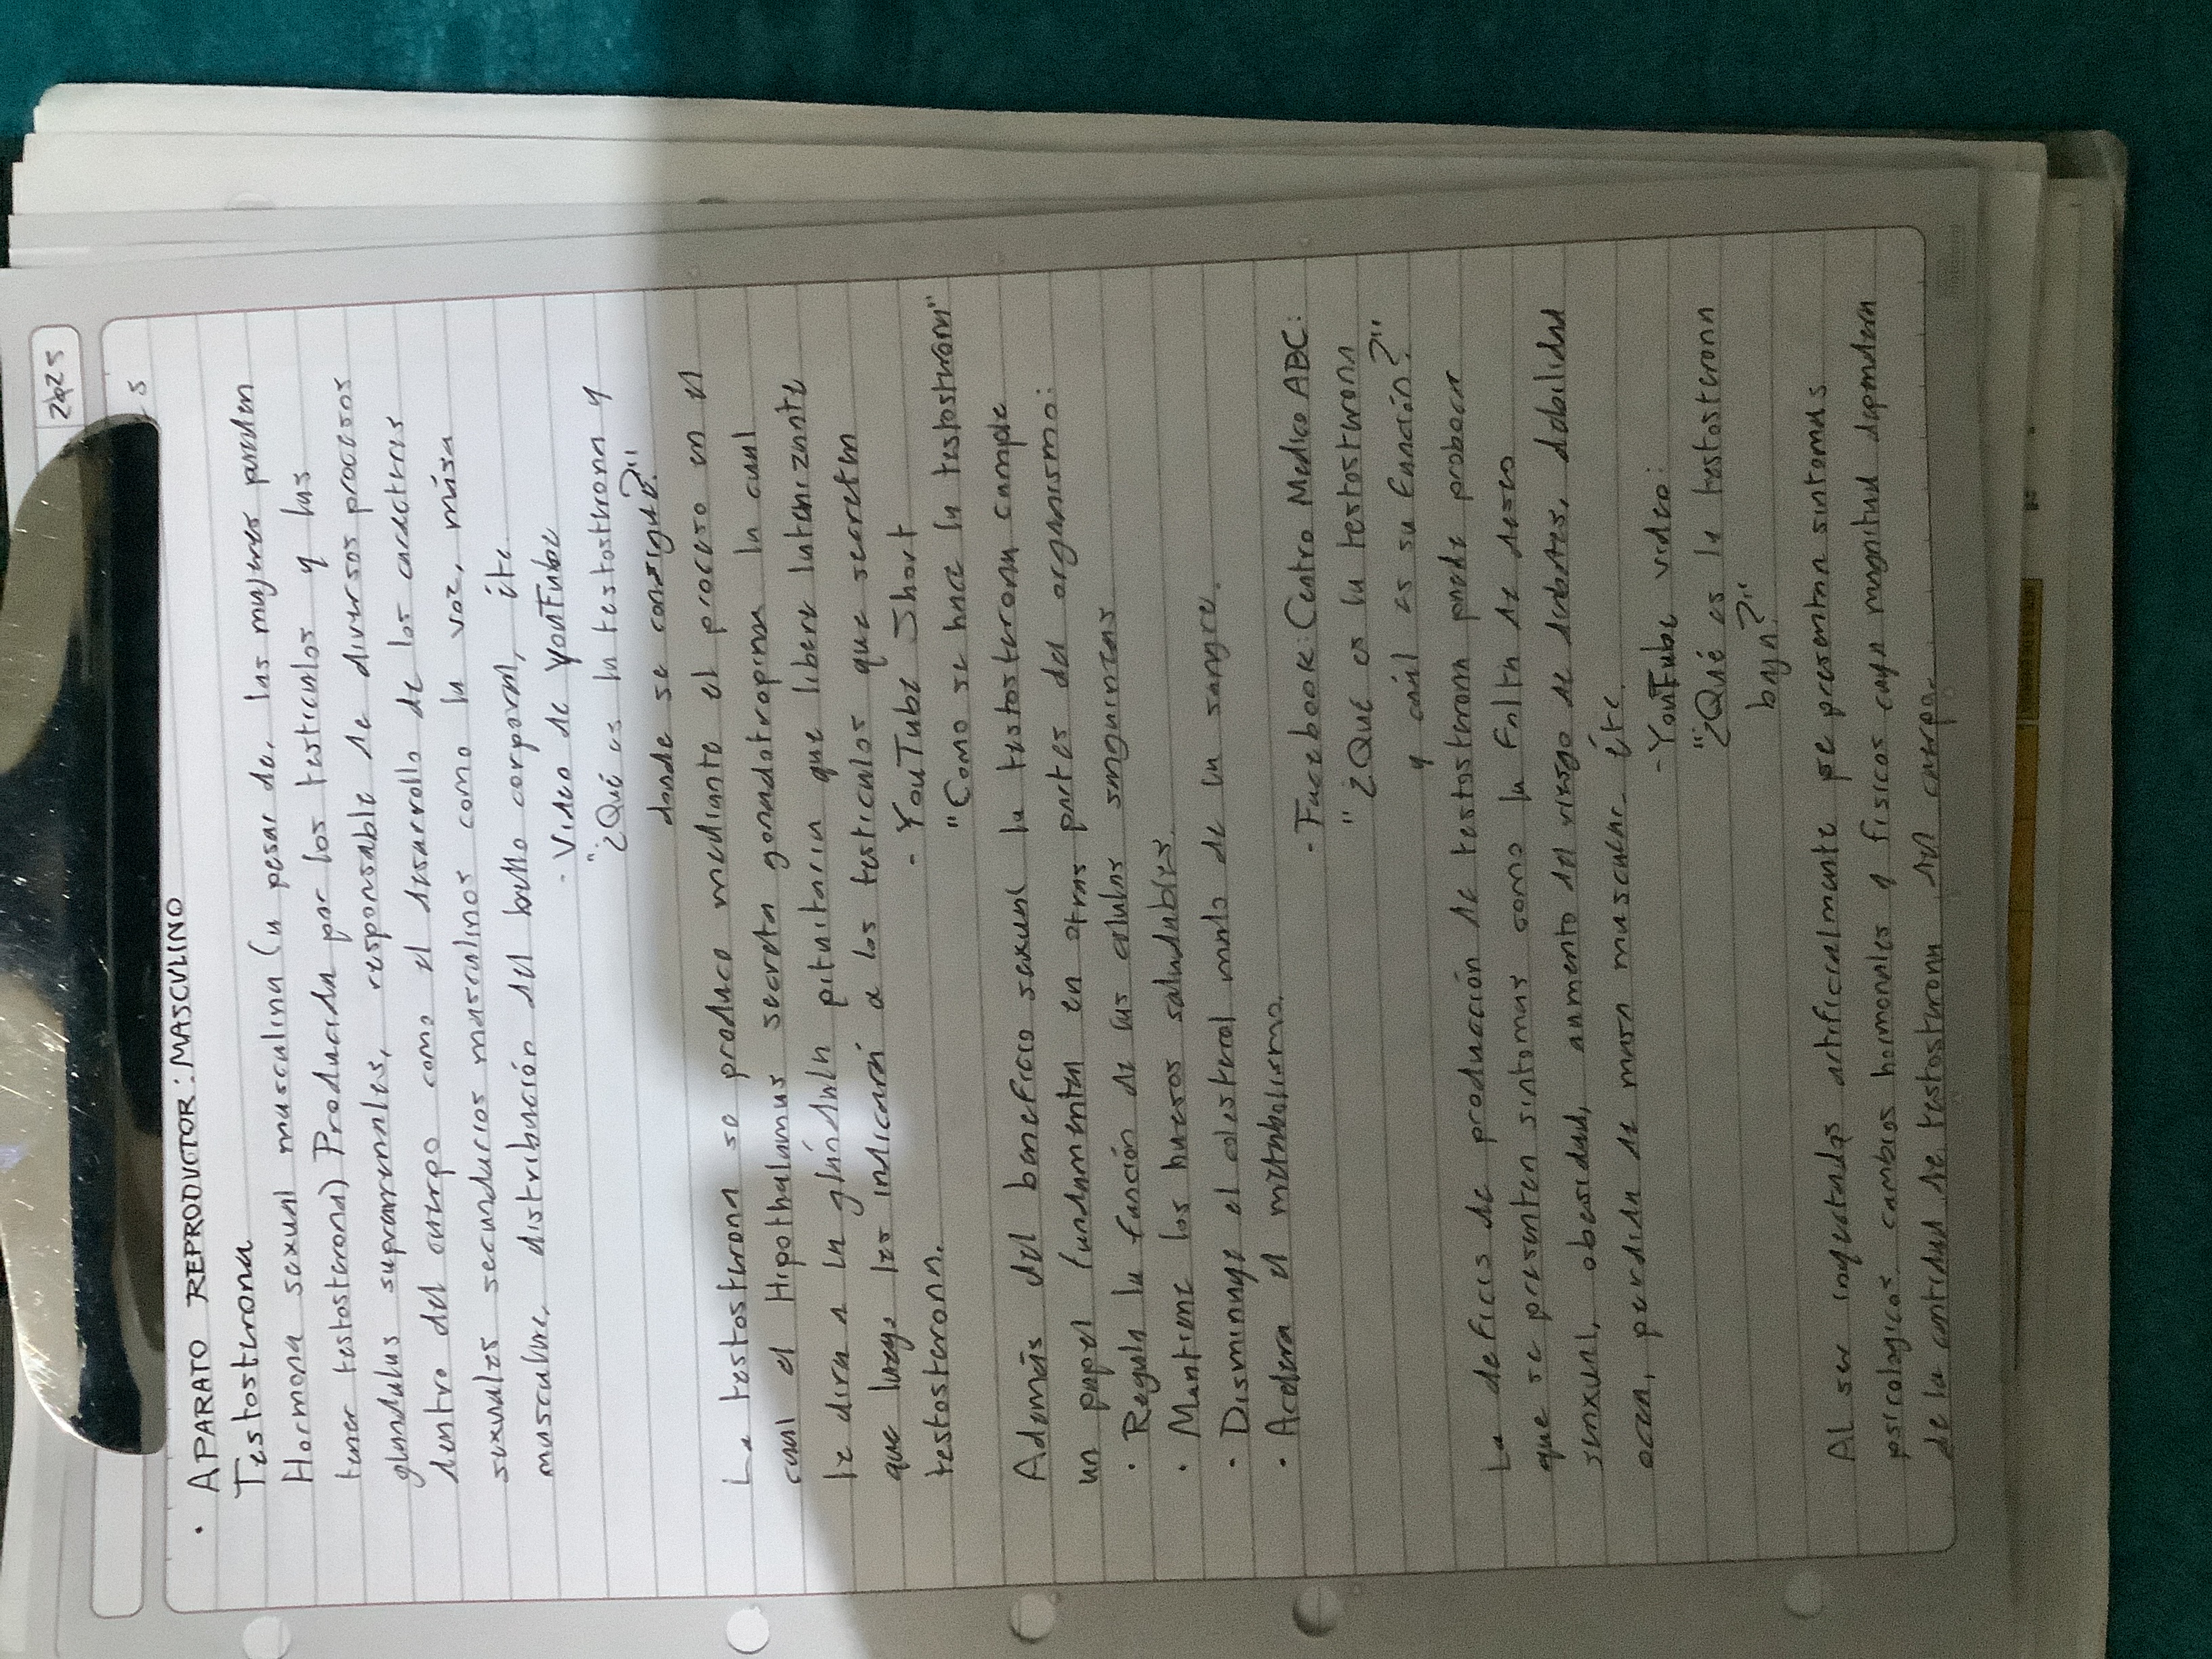 2025
s
• APARATO REPRODUCTOR: MASCULINO
Testosterona
Hormona sexual masculina (a pesar de, las mujeres pueden
tener testosterona) Producida por los testiculos y las
glandulas suprarrenales, responsable de diversos procesos
dentro del cuerpo como el desarrollo de los caracteres
sexuales secundarios masculinos como la voz, mása
muscular, distribución del bello corporal, étc.
- Video de YouTube
"¿Qué es la testosterona y
donde se consigue?"
La testosterona se produce mediante el proceso en el
cual el Hipothalamus secreta gonadotropina la cual
le dira a la glándula pituitaria que libere lutenizante
que luego les indicará a los testiculos que secreten
testosterona.
- YouTube Short
"Como se hace la testosterona"
Además del beneficio sexual la testosterona cumple
un papel fundamental en otras partes del organismo:
• Regula la función de las celulas sanguineas
• Mantiene los huesos saludables.
• Disminuye el colesterol malo de la sangre.
• Acelera el metabolismo.
- Facebook: Centro Medico ABC:
"¿Qué es la testosterona
y cuál es su función?"
La deficis de producción de testosterona puede probocar
que se presenten sintomas como la falta de deseo
sexual, obesidad, aumento del riesgo de diabetes, debilidad
osea, perdida de masa muscular étc.
- YouTube video:
"¿Qué es la testosterona
baja?"
Al ser inyectadas artificialmente se presentan sintomas
psicologicos cambios hormonales y fisicos cuya magnitud dependera
de la cantidad de testosterona del cuerpo.